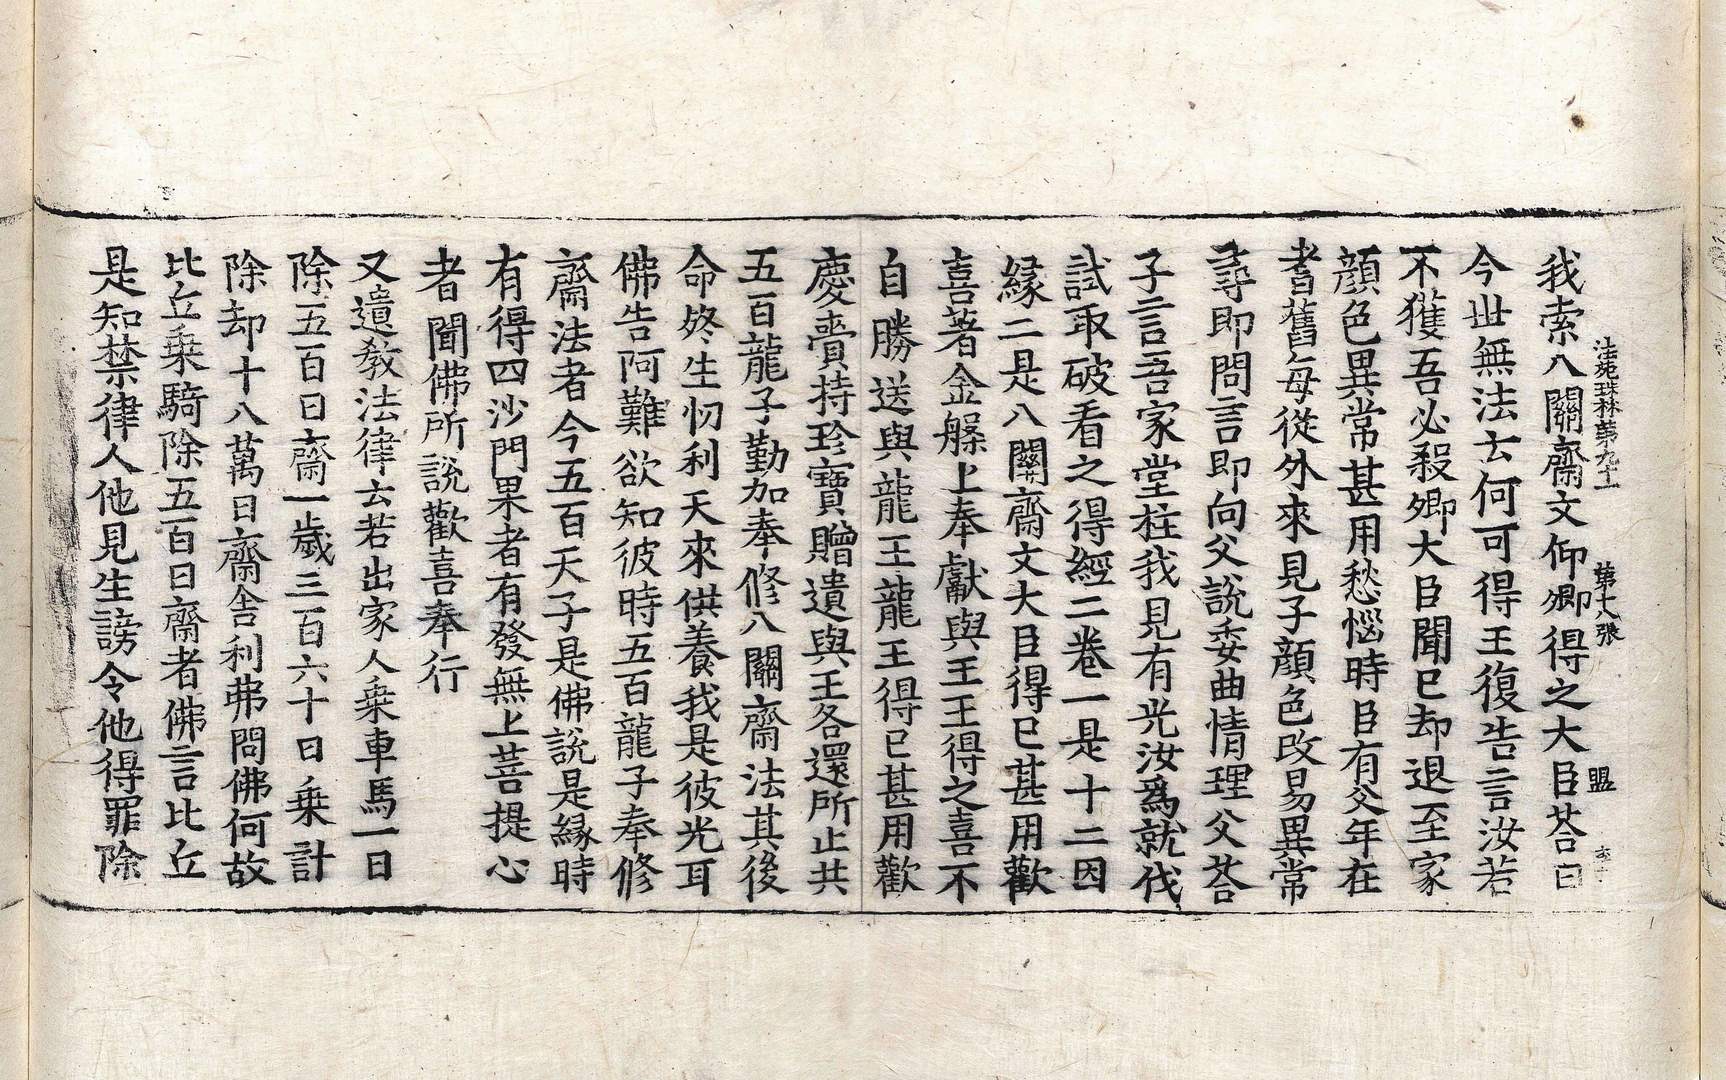 我索八關齋文仰卿得之大臣荅曰
法苑珠林第九十一 第十八張 盟
今世無法去何可得王復告言汝若
不獲吾必殺卿大臣聞已却退至家
顔色異常甚用愁惱時臣有父年在
耆舊每從外來見子顔色改易異常
尋即問言即向父說委曲情理父荅
子言吾家堂柱我見有光汝為就伐
試取破看之得經二卷一是十二因
縁二是八關齋文大臣得已甚用歡
喜著金槃上奉獻與王王得之喜不
自勝送與龍王龍王得已甚用歡
慶賷持珍寶贈遺與王各還所止共
五百龍子勤加奉修八關齋法其後
命終生忉利天來供養我是彼光耳
佛告阿難欲知彼時五百龍子奉修
齋法者今五百天子是佛說是縁時
有得四沙門果者有發無上菩提心
者聞佛所說歡喜奉行
又遺教法律云若出家人乗車馬一日
除五百日齋一歲三百六十日乗計
除却十八萬日齋舍利弗問佛何故
比丘乗騎除五百日齋者佛言比丘
是知禁律人他見生謗令他得罪除